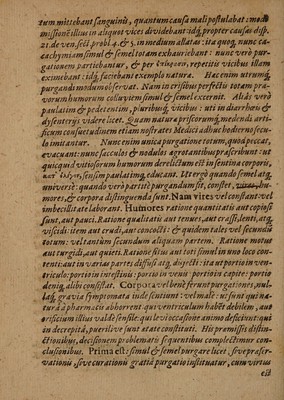 tum mittebant sanguinis, quantum causa mali postulabat: modò
missionẽ illius in aliquot vices dividebant: idq́; propter causas disp.
21. de ven. sect. probl. 4. & 5. in medium allatas: ita quoq; nunc ca-
cochymiam simul & semel totam exhauriebant: nunc verò pur-
gationem partiebantur, & per repetitis vicibus illam
eximebant: idq́; faciebant exemplo naturæ. Hac enim utrumq́;
purgandi modum observat. Nam in crisibus perfectis totam pra-
vorum humorum colluviem simul & semel excernit. Aliàs verò
paulatim & pedetentim, pluribusq́; vicibus: uti in diarrhœis &
dysenterijs videre licet. Quam naturæ priscorumq́; medendi arti-
ficum consuetudinem etiam nostrates Medici adhuc hodierno secu-
lo imitantur. Nunc enim unica purgatione totum, quod peccat,
evacuant: nunc sacculos & nodulos ægrotantibus præscribunt: ut
quicquid vitiosorum humorum derelictum est in sentina corporis,
sensim paulatimq; educant. Ut ergò quando semel atq́;
universè: quando verò partitè purgandum sit, constet,
mores, & corpora distinguenda sunt. Nam vires vel constant: vel
imbecillitate laborant. Humores ratione quantitatis aut copiosi
sunt, aut pauci. Ratione qualitatis aut tenues, aut crassi, lenti, atq;
viscidi: item aut crudi, aut concocti: & quidem tales vel secundùm
totum: vel tantùm secundum aliquam partem. Ratione motus
aut turgidi, aut quieti. Ratione situs aut toti simul in uno loco con-
tenti: aut in varias partes diffusi: atq́; disjecti: ita ut portio in ven-
triculo: portio in intestinis: portio in venis: portio in capite: portio
deniq́; alibi consistat. Corpora vel benè ferunt purgationes, nul-
laq́; gravia symptomata inde sentiunt: vel malè: ut sunt qui na-
turâ à pharmacis abhorrent: qui ventriculum habẽt debilem, aut
orificium illius valdè sensile: qui levi occasione animo deficiunt: qui
in decrepita, puerilive sunt ætate constituti. His præmissis distin-
ctionibus, decisionem problematis sequentibus complectimur con-
clusionibus. Prima est: simul & semel purgare licet, seve præser-
vationis, seve curationis gratiâ purgatio instituatur, cum virtus
est